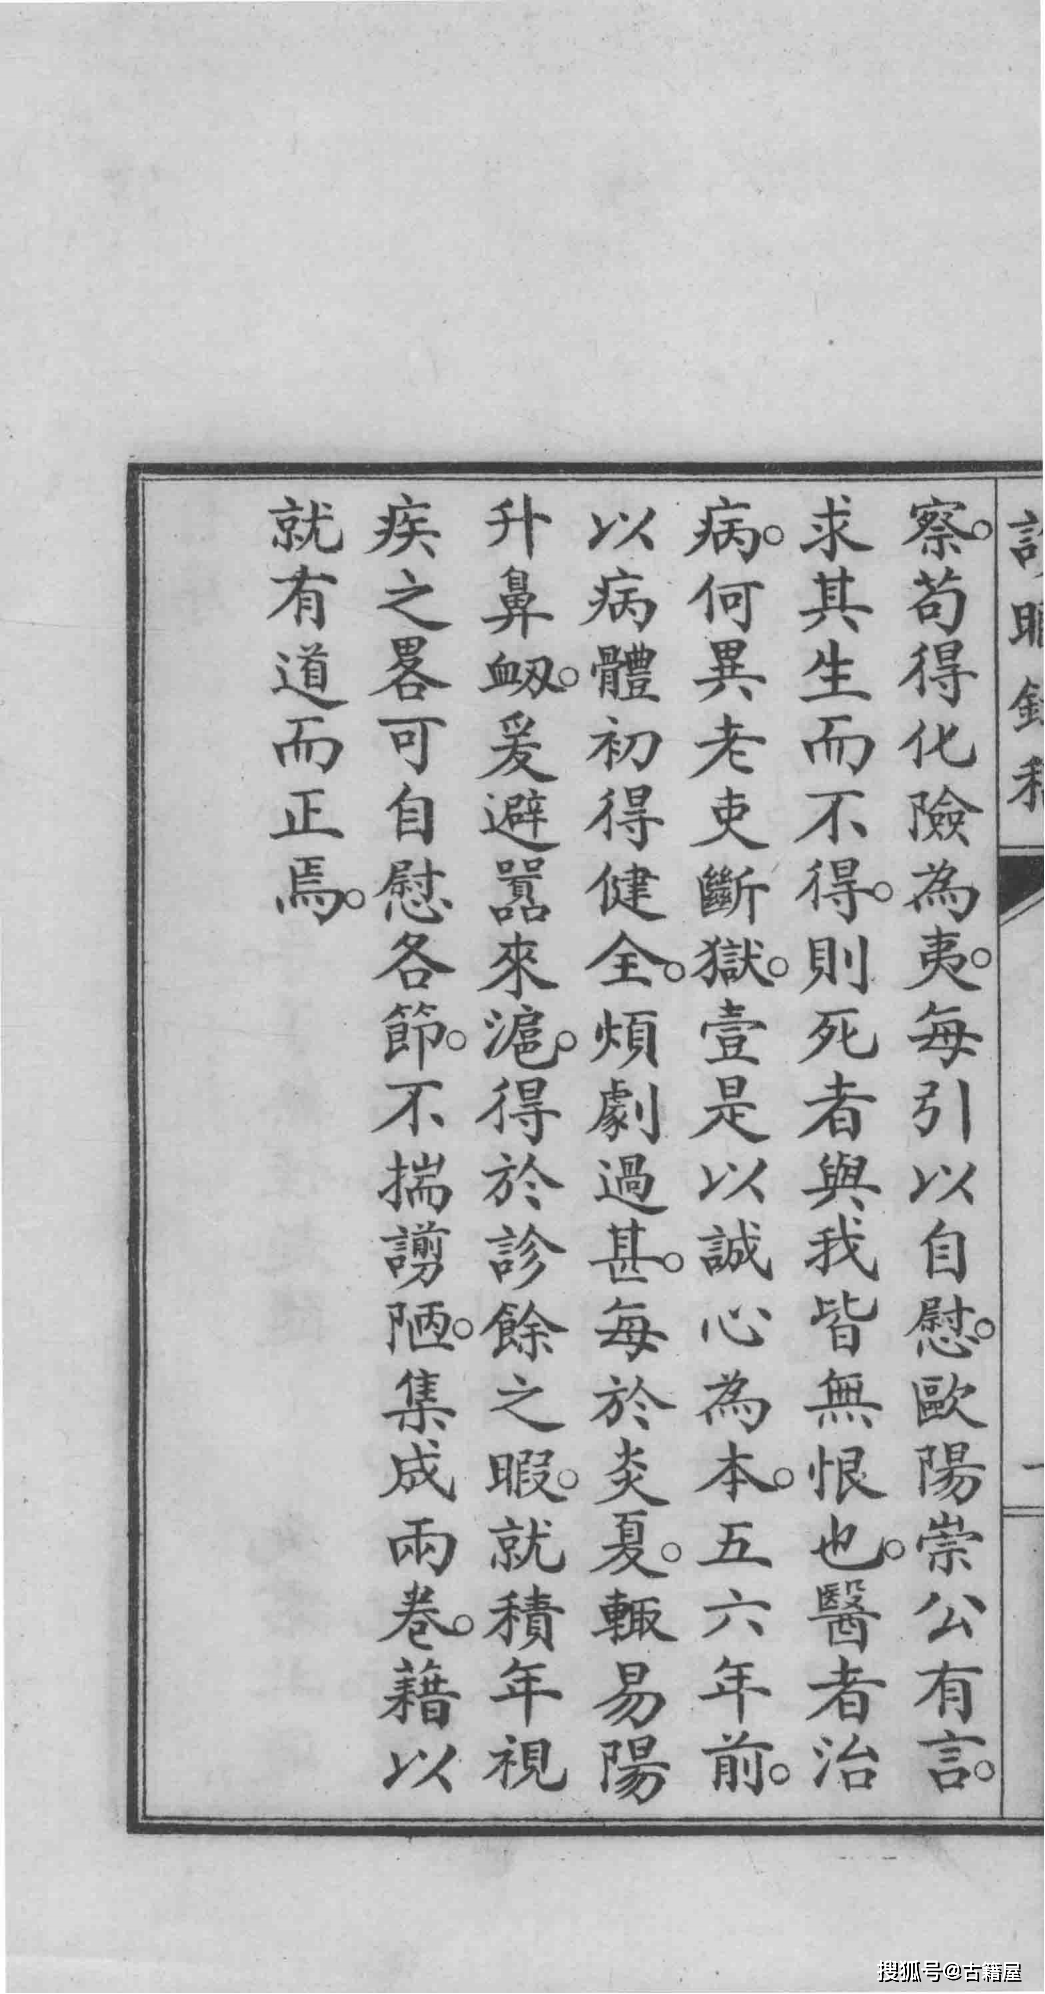 察。苟得化險為夷。每引以自慰。歐陽崇公有言。
求其生而不得。則死者與我皆無恨也。醫者治
病。何異老吏斷獄。壹是以誠心為本。五六年前。
以病體初得健全。煩劇過甚。每於炎夏。輒易陽
升鼻衂。爰避囂來滬。得於診餘之暇。就積年視
疾之畧可自慰各節。不揣謭陋。集成兩卷。藉以
就有道而正焉。
一
搜狐号@古籍屋